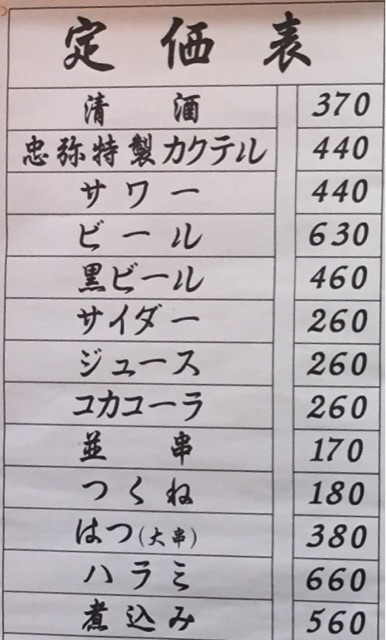 定価表
清酒 370
忠弥特製カクテル 440
サワー 440
ビール 630
黒ビール 460
サイダー 260
ジュース 260
コカコーラ 260
並串 170
つくね 180
はつ(大串) 380
ハラミ 660
煮込み 560